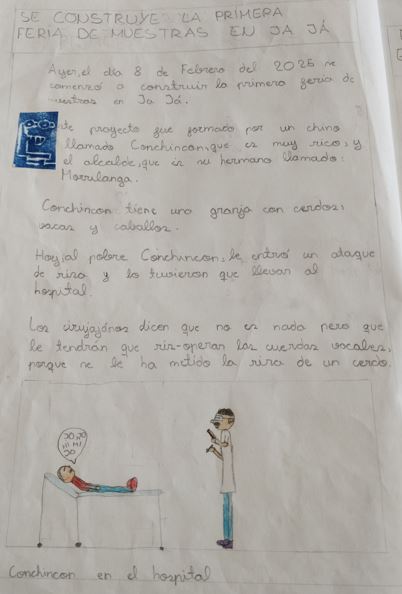 SE CONSTRUYE LA PRIMERA
FERIA DE MUESTRAS EN JA JÁ
Ayer, el día 8 de Febrero del 2025 se
comenzó a construir la primera feria de
muestras en Ja Já.
ste proyecto fue formado por un chino
llamado Conchincon, que es muy rico, y
el alcalde, que es su hermano llamado:
Morrilanga.
Conchincon tiene una granja con cerdos,
vacas y caballos.
Hoy, al pobre Conchincon, le entró un ataque
de risa y lo tuvieron que llevar al
hospital.
Los cirujajános dicen que no es nada pero que
le tendrán que ris-operar las cuerdas vocales,
porque se le ha metido la risa de un cerdo.
JO JO
HI HI
JO
Conchincon en el hospital